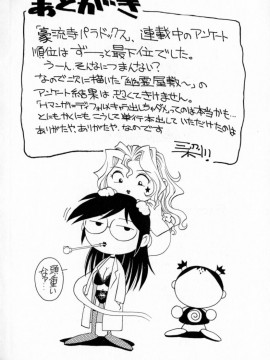 あとがき
「豪流寺パラドックス」、連載中のアンケート
順位はずーっと最下位でした。
うーん、そんなにつまんない?
なので次に描いた「幽霊屋敷〜」の
アンケート結果は恐くてきけません。
「Hマンガにディフォルメもの出しちゃ
ってのは本当かも…
ともかくにもこうして単行本出していただけたのは
ありがたや、ありがたや、なのです
頭重い
なや…